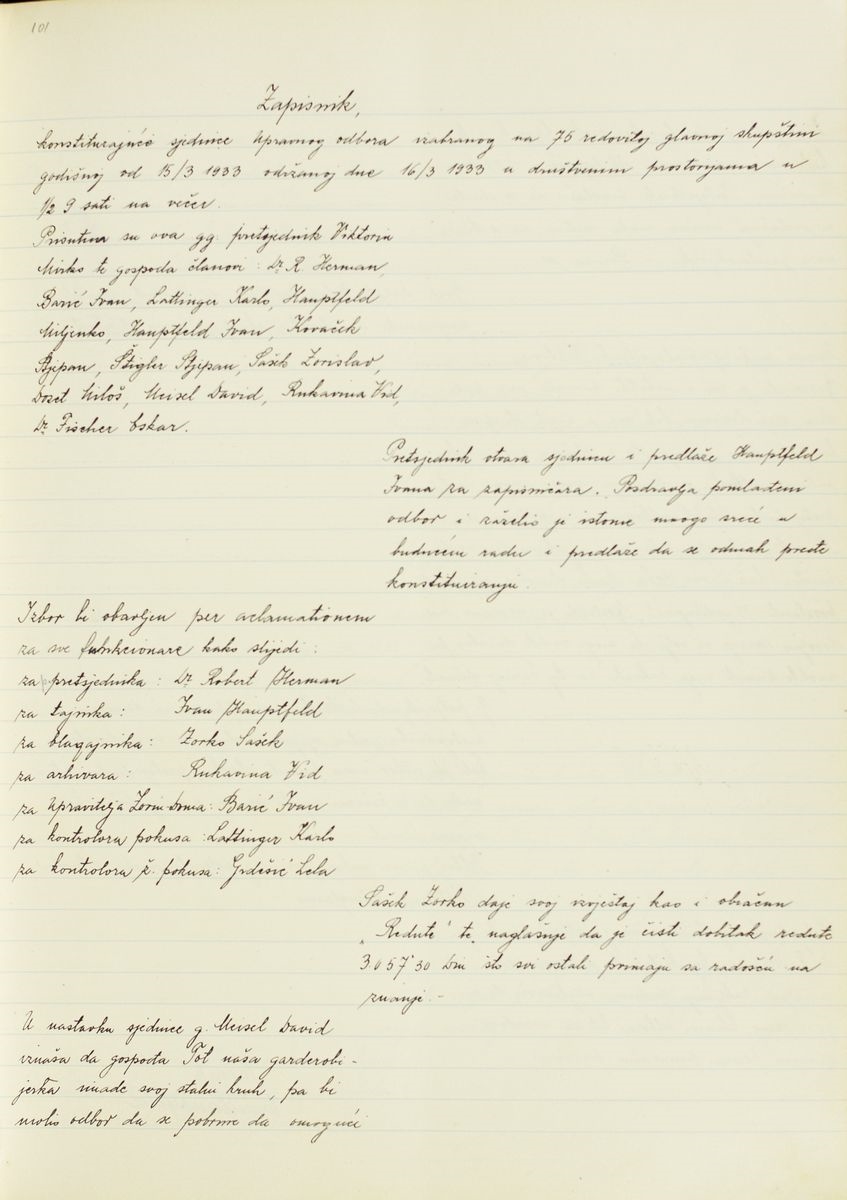 101
Zapisnik,
konstituirajuće sjednice Upravnog odbora izabranog na 75 redovitoj glavnoj skupštini
godišnoj od 15/3 1933 održanoj dne 16/3 1933 u društvenim prostorijama u
1/2 9 sati na večer.
Prisutna su ova gg. pretsjednik Viktorin
Mirko te gospoda članovi: Dr. R. Herman,
Barić Ivan, Lattinger Karlo, Hauptfeld
Miljenko, Hauptfeld Ivan, Kovaček
Stjepan, Štigler Stjepan, Sašek Zorislav,
Doset Miloš, Meisel David, Rukavina Vid,
Dr. Fischer Oskar.
Pretsjednik otvara sjednicu i predlaže Hauptfeld
Ivana za zapisničara. Pozdravlja pomlađeni
odbor i zaželio je istome mnogo sreće u
budućem radu i predlaže da se odmah pređe
konstituiranju.
Izbor bi obavljen per aclamationem
za sve funkcionare kako slijedi:
za pretsjednika: Dr. Robert Herman
za tajnika: Ivan Hauptfeld
za blagajnika: Zorko Sašek
za arhivara: Rukavina Vid
za Upravitelja Zorin-Doma: Barić Ivan
za kontrolora pokusa: Lattinger Karlo
za kontrolora ž. pokusa: Grdešić Lela
Sašek Zorko daje svoj izvještaj kao i obračun
„Redute" te naglašuje da je čisti dobitak redute
3057·30 Din što svi ostali primaju sa radošću na
znanje.-
U nastavku sjednice g. Meisel David
iznaša da gospođa Tot naša garderobi-
jerka imade svoj stalni kruh, pa bi
molio odbor da se pobrine da omogući